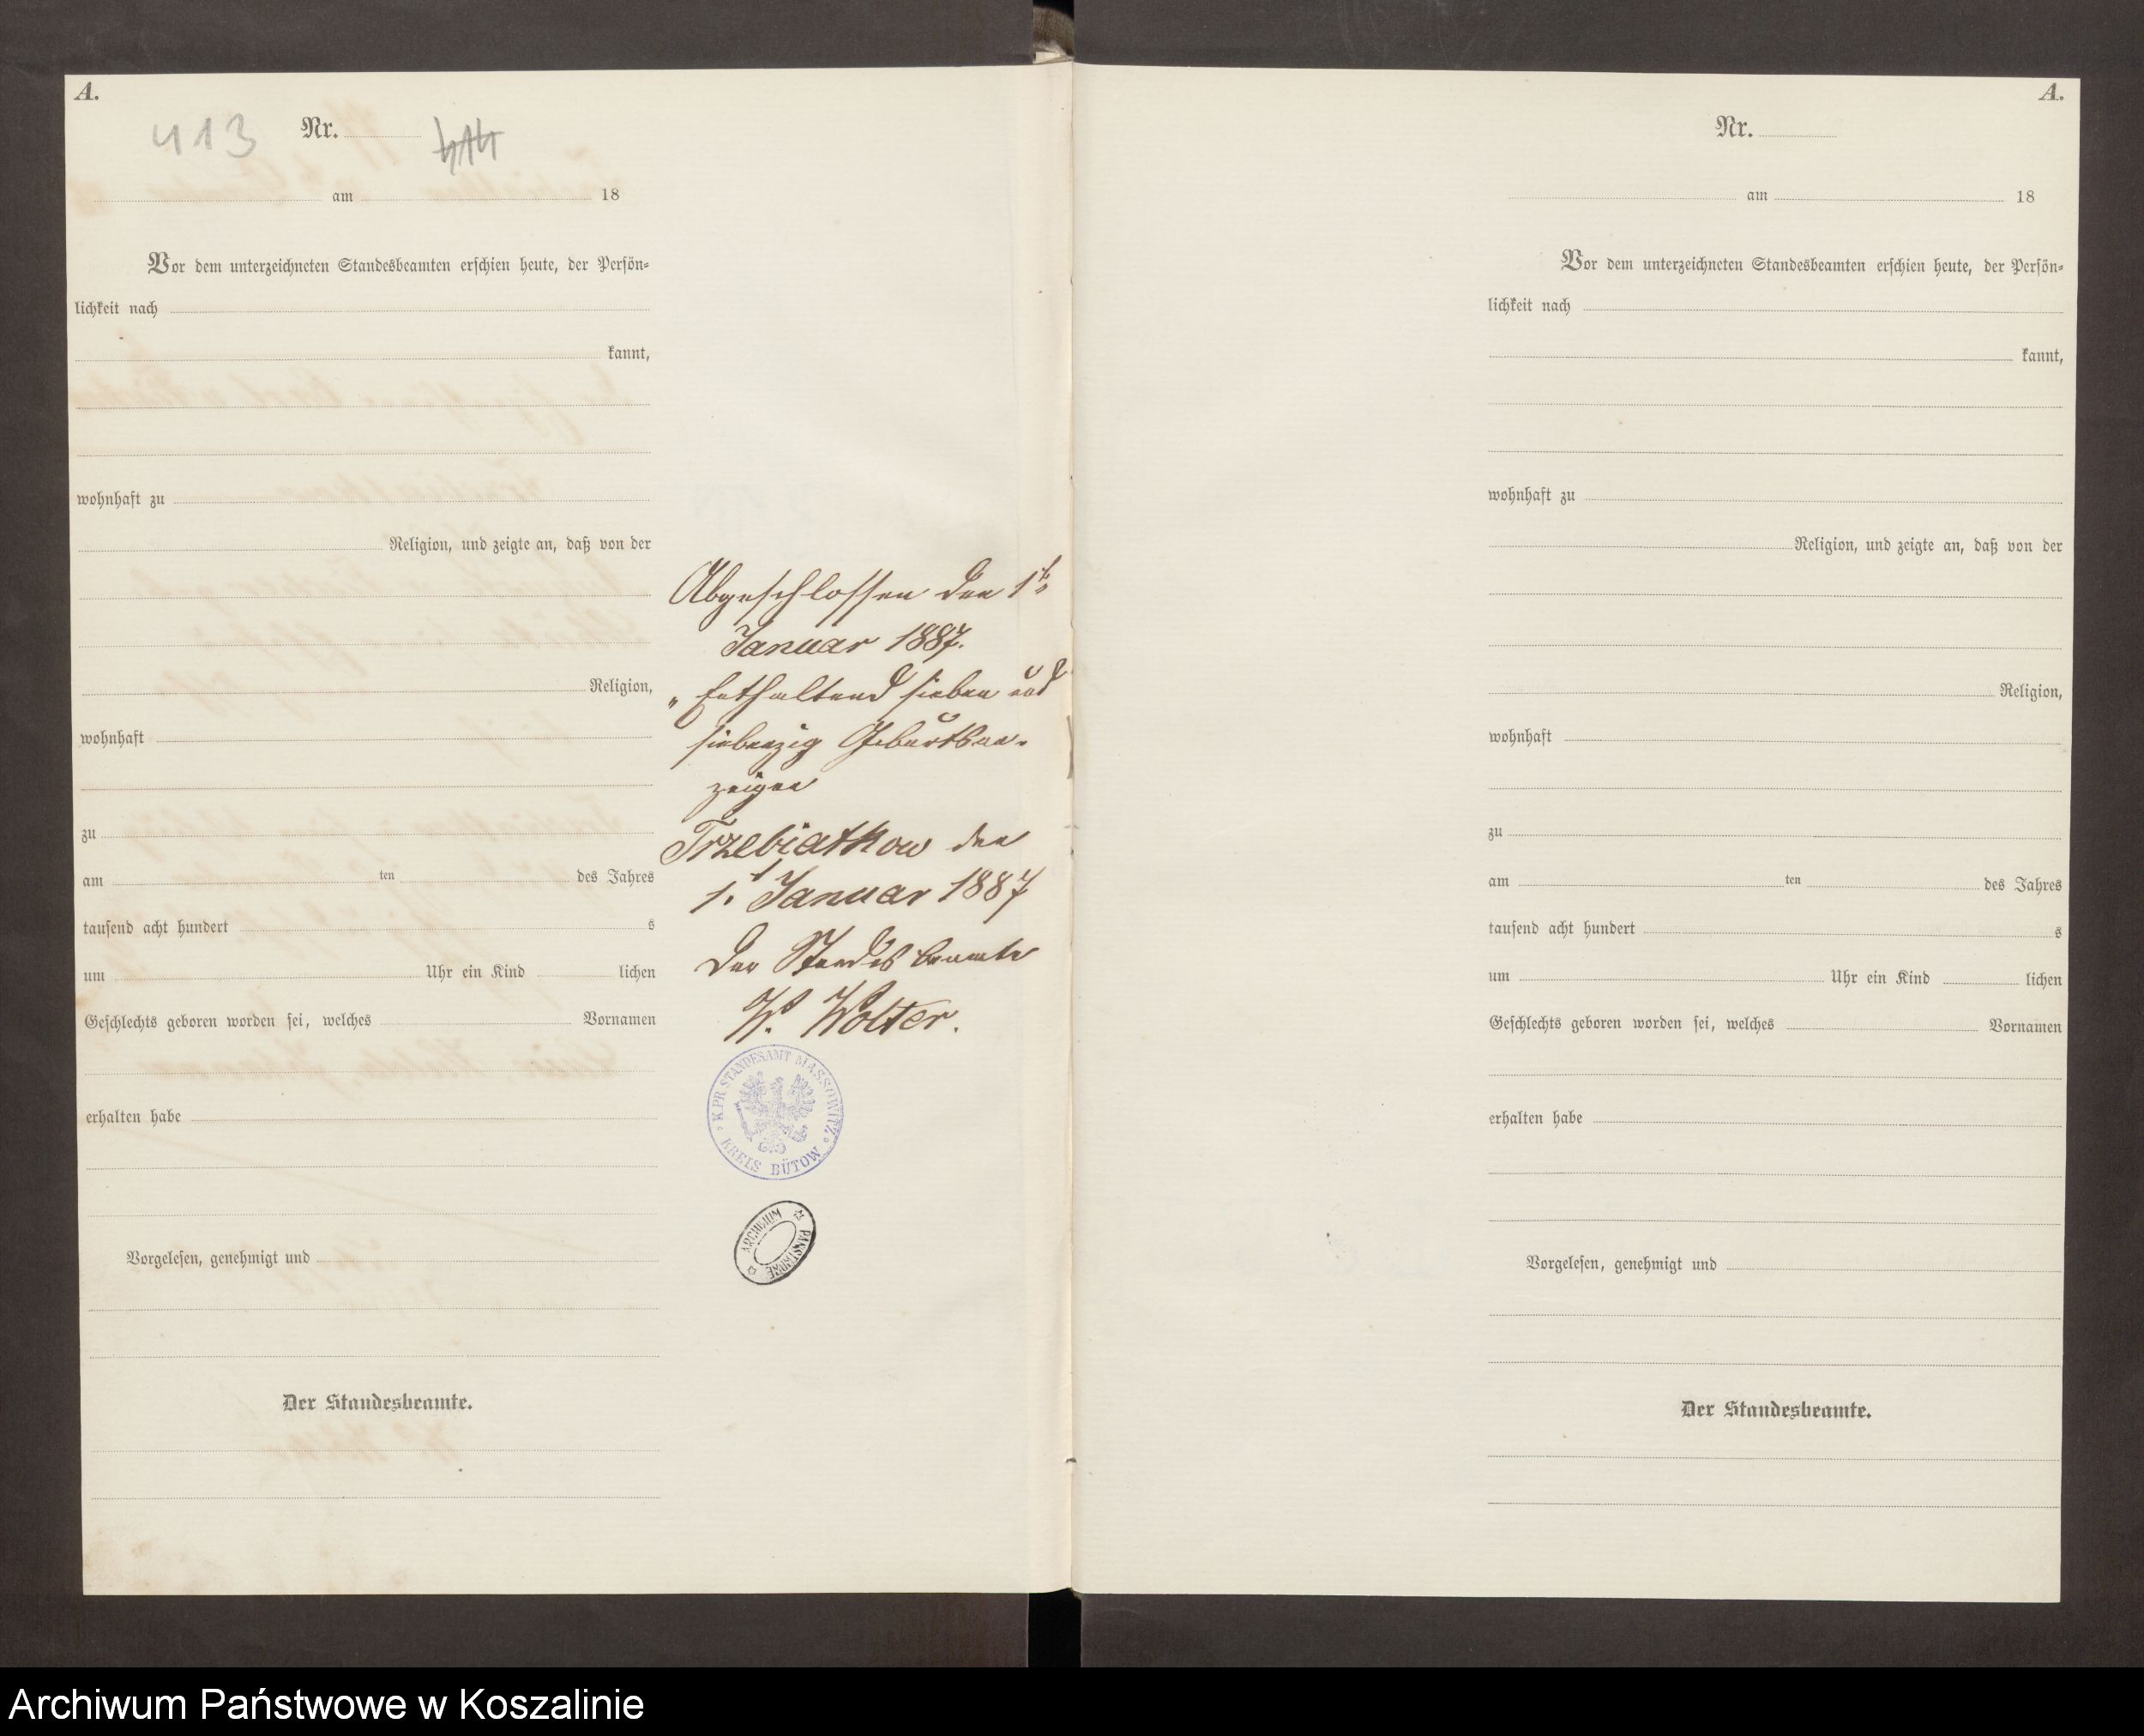 A.
413 Nr. 414
am 18
Vor dem unterzeichneten Standesbeamten erschien heute, der Persön-
lichkeit nach
kannt,
wohnhaft zu
Religion, und zeigte an, daß von der
Religion,
wohnhaft
zu
am ten des Jahres
tausend acht hundert s
um Uhr ein Kind lichen
Geschlechts geboren worden sei, welches Vornamen
erhalten habe
Vorgelesen, genehmigt und
Der Standesbeamte.
Abgeschlossen den 1t
Januar 1887.
„Enthaltend sieben und
siebenzig Geburtsan-
zeigen
Trzebiatkow den
1. Januar 1887
Der Standesbeamte
W. Wolter.
K.PR.STANDESAMT MASSOWITZ
KREIS BÜTOW
ARCHIWUM PAŃSTWOWE
A.
Nr.
am 18
Vor dem unterzeichneten Standesbeamten erschien heute, der Persön-
lichkeit nach
kannt,
wohnhaft zu
Religion, und zeigte an, daß von der
Religion,
wohnhaft
zu
am ten des Jahres
tausend acht hundert s
um Uhr ein Kind lichen
Geschlechts geboren worden sei, welches Vornamen
erhalten habe
Vorgelesen, genehmigt und
Der Standesbeamte.
Archiwum Państwowe w Koszalinie